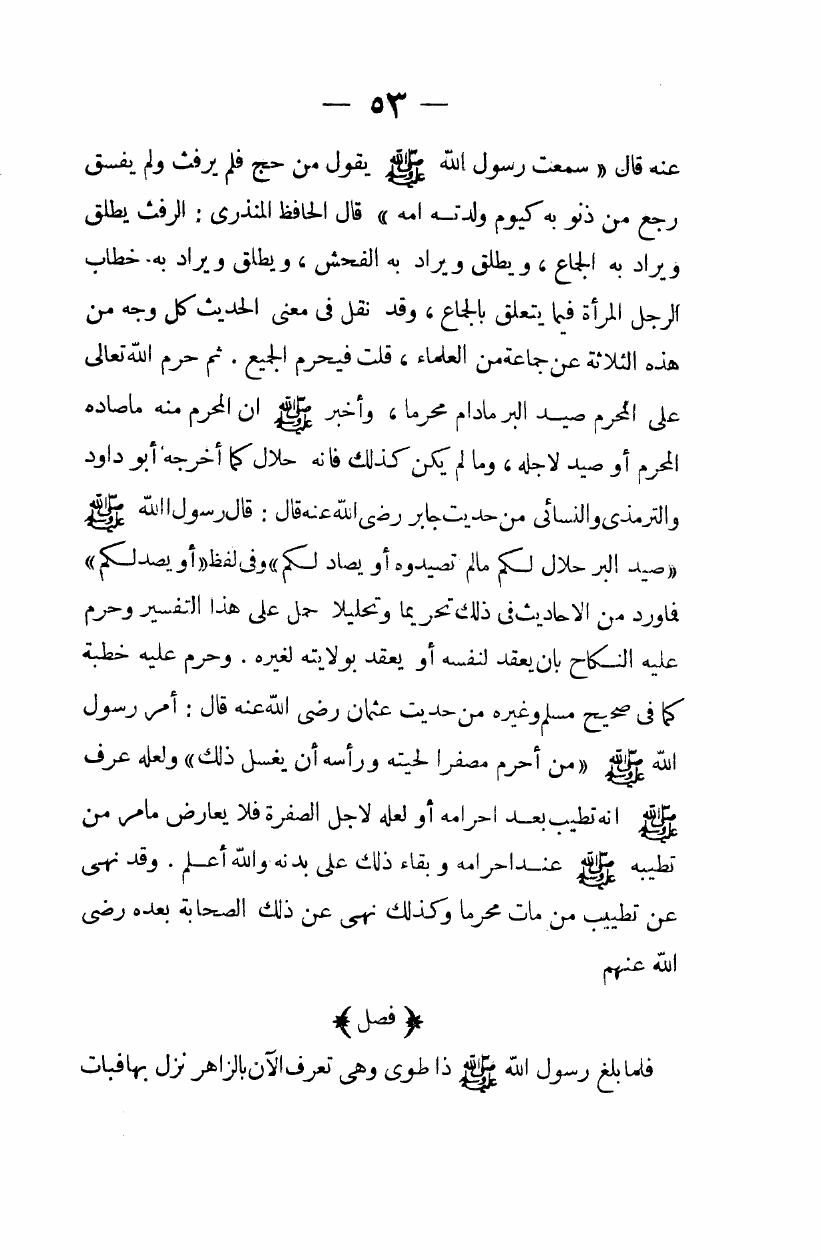 — ٥٣ —
عنه قال « سمعت رسول الله ﷺ يقول من حج فلم يرفث ولم يفسق
رجع من ذنو به كيوم ولدتـه امه » قال الحافظ المنذرى : الرفث يطلق
ويراد به الجماع ، ويطلق ويراد به الفحش ، ويطلق ويراد به خطاب
الرجل المرأة فيما يتعلق بالجماع ، وقد نقل فى معنى الحديث كل وجه من
هذه الثلاثة عن جماعة من العلماء ، قلت فيحرم الجميع . ثم حرم الله تعالى
على المحرم صيـد البر مادام محرما ، وأخبر ﷺ ان المحرم منه ماصاده
المحرم أو صيد لاجله ، وما لم يكن كذلك فانه حلال كما أخرجه أبو داود
والترمذى والنسائى من حديث جابر رضى الله عنه قال : قال رسول الله ﷺ
«صيد البر حلال لكم مالم تصيدوه أو يصاد لكم» وفى لفظ «أو يصد لكم»
فاورد من الاحاديث فى ذلك تحريما وتحليلا حمل على هذا التفسير وحرم
عليه النكاح بان يعقد لنفسه أو يعقد بولايته لغيره . وحرم عليه خطبة
كما فى صحيح مسلم وغيره من حديث عثمان رضى الله عنه قال : أمر رسول
الله ﷺ «من أحرم مصفرا لحيته ورأسه أن يغسل ذلك» ولعله عرف
ﷺ انه تطيب بعـد احرامه أو لعله لاجل الصفرة فلا يعارض مامر من
تطيبه ﷺ عنـد احرامه وبقاء ذلك على بدنه والله أعـلم . وقد نهى
عن تطييب من مات محرما وكذلك نهى عن ذلك الصحابة بعده رضى
الله عنهم
﴿ فصل ﴾
فلما بلغ رسول الله ﷺ ذا طوى وهى تعرف الآن بالزاهر نزل بها فبات